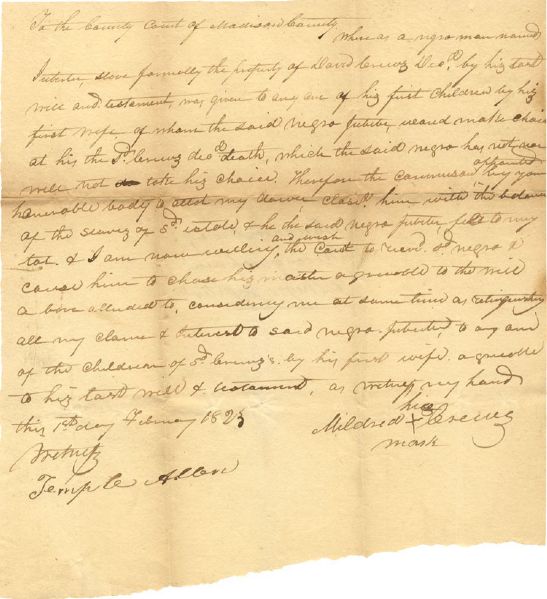 To the County Court of Madison County
Whereas a negro man named
Jubeter, slove formally the property of David Crewz Decd. by hiz last
will and testament, was given to any one of hiz first children by hiz
first wife, of whom the said negro Jubiter, would make choice
at his the sd. Crewz decd death, which the said negro has not, nor
will not take hiz choice. Therefore the Commiss appointed by your
honerable body to allot my dower classd. him with the balance
of the slaves of sd. estate & he the said negro Jubiter fell to my
lot. & I am now willing and wish the Court to sd negro &
cause him to chose hiz master agreeable to the will
above alluded to, considering me at same time as relinquishing
all my clame & interest to said negro Jubiter, to any one
of the children of sd. Crewz's by his first wife agreeable
to hiz last will & testament, as witness my hand
this 1st day February 1823
his
Mildred X Crewz
mark
Witness
Temple Allen